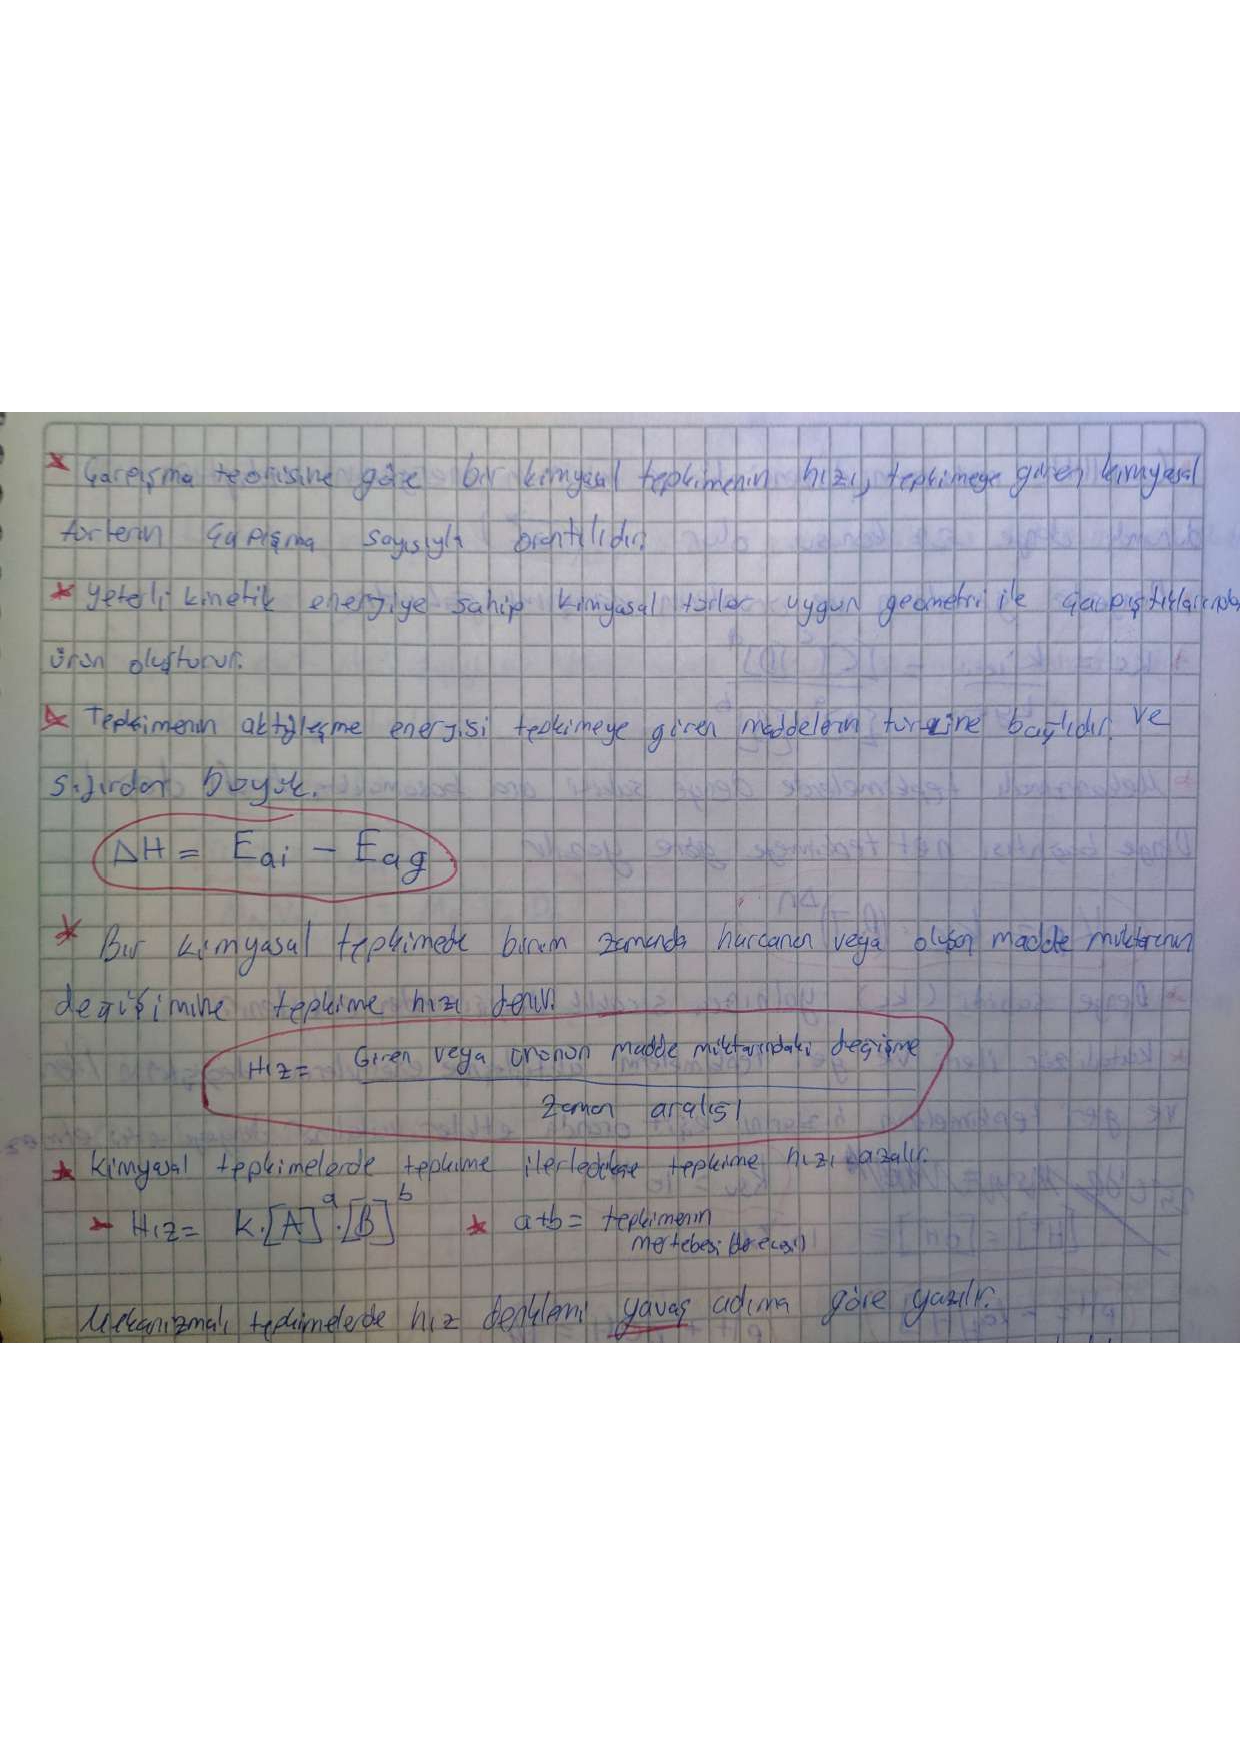 * Çarpışma teorisine göre bir kimyasal tepkimenin hızı, tepkimeye giren kimyasal
türlerin çarpışma sayısıyla orantılıdır.
* Yeterli kinetik enerjiye sahip kimyasal türler uygun geometri ile çarpıştıklarında
ürün oluşturur.
* Tepkimenin aktifleşme enerjisi tepkimeye giren maddelerin türüne bağlıdır ve
sıfırdan büyük.
ΔH = Eai - Eag
* Bir kimyasal tepkimede birim zamanda harcanan veya oluşan madde miktarının
değişimine tepkime hızı denir.
Hız = Giren veya ürünün madde miktarındaki değişme
Zaman aralığı
* Kimyasal tepkimelerde tepkime ilerledikçe tepkime hızı azalır.
- Hız = k.[A]^a.[B]^b * a+b = tepkimenin
mertebesi (derecesi)
Mekanizmalı tepkimelerde hız denklemi yavaş adıma göre yazılır.